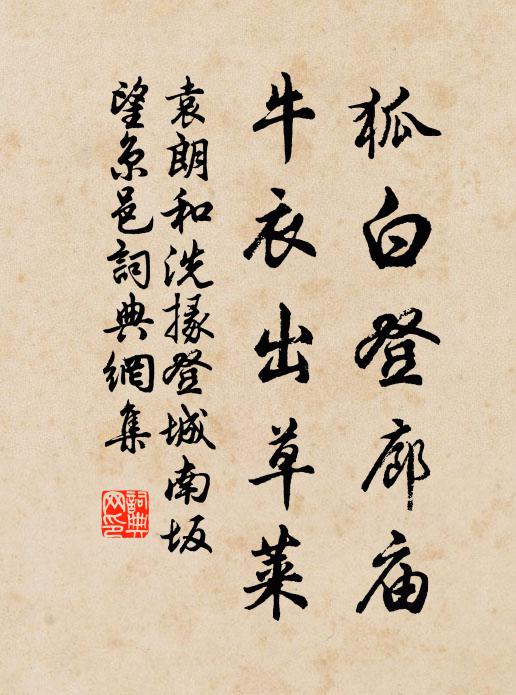 狐白登廊庙
牛衣出草莱
袁朗和洗掾登城南坂
望京邑词典網集
詞典
网印